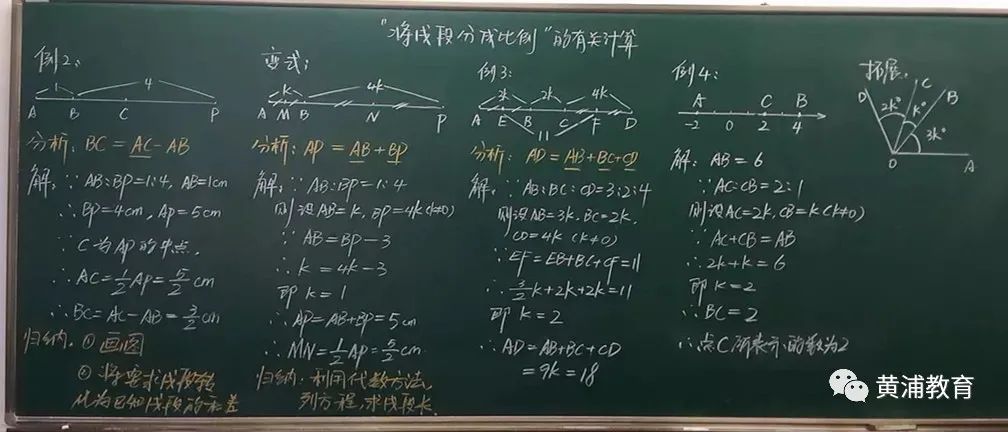 "将线段分成比例"的有关计算
例2：
1
4
A B C P
分析：BC = AC - AB
解：∵AB:BP=1:4, AB=1cm
∴BP=4cm, AP=5cm
∵C为AP的中点,
∴AC=½AP=5/2 cm
∴BC=AC-AB=3/2 cm
归纳：①画图
②将要求线段转
化为已知线段的和差
变式：
k
4k
A M B N P
分析：AP = AB+BP
解：∵AB:BP=1:4
则设AB=k, BP=4k(k≠0)
∵AB=BP-3
∴k=4k-3
即k=1
∴AP=AB+BP=5cm
∴MN=½AP=5/2 cm
归纳：利用代数方法,
列方程,求线段长.
例3：
3k
2k
4k
A E B C F D
11
分析：AD=AB+BC+CD
解：∵AB:BC:CD=3:2:4
则设AB=3k, BC=2k,
CD=4k (k≠0)
∵EF=EB+BC+CF=11
∴3/2k+2k+2k=11
即k=2
∴AD=AB+BC+CD
=9k=18
例4：
A C B
-2 0 2 4
解：AB=6
∵AC:CB=2:1
则设AC=2k, CB=k(k≠0)
∵AC+CB=AB
∴2k+k=6
即k=2
∴BC=2
∴点C所表示的数为2
拓展：
D C B
2k° k° 3k°
O A
黄浦教育